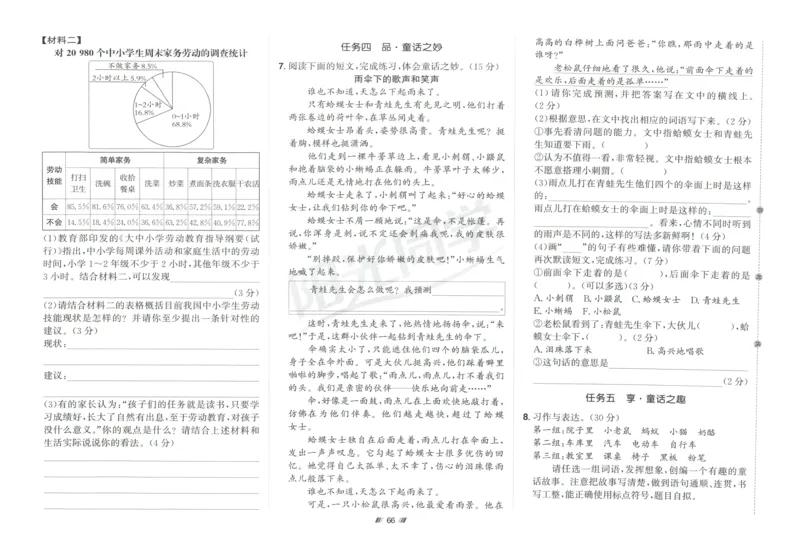 【材料二】
对 20 980 个中小学生周末家务劳动的调查统计
不做家务 8.5%
2小时以上 5.9%
1~2小时
16.8%
0~1小时
68.8%
劳动技能 简单家务 复杂家务
打扫卫生 洗碗 收拾餐桌 洗菜 炒菜 煮面条 洗衣服 干农活
会 85.5% 81.6% 76.0% 63.4% 36.8% 57.2% 59.1% 22.2%
不会 14.5% 18.4% 24.0% 36.6% 63.2% 42.8% 40.9% 77.8%
(1)教育部印发的《大中小学劳动教育指导纲要(试
行)》指出,中小学每周课外活动和家庭生活中的劳动
时间,小学1~2年级不少于2小时,其他年级不少于
3小时。结合材料二,可以发现
(3分)
(2)请结合材料二的表格概括目前我国中小学生劳动
技能现状是怎样的?并请你至少提出一条针对性的
建议。(3分)
现状:
建议:
(3)有的家长认为:“孩子们的任务就是读书,只要学
习成绩好,长大了自然有出息,至于劳动教育,对孩子
没什么意义。”你的观点是什么?请结合上述材料和
生活实际说说你的看法。(4分)
任务四 品·童话之妙
7. 阅读下面的短文,完成练习,体会童话之妙。(15分)
雨伞下的歌声和笑声
谁也不知道,天怎么下起雨来了。
只有蛤蟆女士和青蛙先生有先见之明,他们打着
两张蓄边的荷叶伞,在草丛间走着。
蛤蟆女士昂着头,姿势很高贵。青蛙先生呢?挺
着胸,模样也挺潇洒。
他们走到一棵牛蒡草边上,看见小刺猬、小鼹鼠
和抱着脑袋的小蜥蜴正在躲雨。牛蒡草叶子太稀少,
雨点儿还是无情地打在他们的头上。
蛤蟆女士走来了,小刺猬叫了起来:“好心的蛤蟆
女士,让我们钻到你的伞下吧。”
蛤蟆女士不屑一顾地说:“这是伞,不是帐篷。再
说,你浑身是刺,说不定还会刺痛我呢,我的皮肤很
娇嫩。”
“别摔跤,保护好你娇嫩的皮肤吧!”小蜥蜴生气
地喊了起来。
青蛙先生会怎么做呢?我预测
这时,青蛙先生走来了,他热情地扬扬伞,说:“来
吧!”于是,这帮小伙伴们一起钻到青蛙先生的伞下。
伞确实太小了,只能遮住他们四个的脑袋瓜儿,
身子全在伞外面。可是大伙儿挺高兴,他们踩着噼里
啪啦的脚步,唱起了歌:“雨点儿,雨点儿,打不着我们
的头。我们是亲密的伙伴——快乐地向前走……”
伞,好像是一面鼓,雨点儿在上面欢快地敲打着,
仿佛在为他们伴奏。他们越走越快,超过了蛤蟆
女士。
蛤蟆女士独自在后面走着,雨点儿打在伞面上,
发出一声声叹息。它勾起了蛤蟆女士很多忧伤的回
忆。她觉得自己太孤单、太不幸了,伤心的泪珠像雨
点儿般落下来。
谁也不知道,天怎么下起雨来了。
可是,一只小松鼠很高兴,他最爱看雨景。他在
高高的白桦树上面问爸爸:“你瞧,那雨中走着的是
谁呀?”
老松鼠仔细地看了很久,他说:“前面伞下走着的
是欢乐,后面走着的是孤单……”
(1)请你完成预测,并把答案写在文中的横线上。
(2分)
(2)根据意思,在文中找出相应的词语写下来。(2分)
①事先看清问题的能力。文中指蛤蟆女士和青蛙先
生知道要下雨。( )
②认为不值得一看,非常轻视。文中指蛤蟆女士根本
不愿意搭理小刺猬。( )
(3)雨点儿打在青蛙先生他们四个的伞面上时是这样
的:
雨点儿打在蛤蟆女士的伞面上时是这样的:
。看来,心情不同时听到
的雨声是不同的,这样的写法多新鲜啊!(4分)
(4)画“ ”的句子有些难懂,请你带着下面的问题
再次默读短文,完成练习。(7分)
①前面伞下走着的是( ),后面伞下走着的是
( )。(可以多选)(3分)
A. 小刺猬 B. 小鼹鼠 C. 蛤蟆女士 D. 青蛙先生
E. 小蜥蜴 F. 小松鼠
②老松鼠看到了:青蛙先生伞下,大伙儿( ),蛤
蟆女士伞下,( )。(2分)
A. 泪珠落下来 B. 高兴地唱歌
③这句话的意思是
(2分)
任务五 享·童话之趣
8. 习作与表达。(30分)
第一组:院子里 小老鼠 蚂蚁 小猫 奶酪
第二组:车库里 汽车 电动车 自行车
第三组:教室里 课桌 椅子 黑板 粉笔
请任选一组词语,发挥想象,创编一个有趣的童
话故事。注意把故事写清楚,做到语句通顺、连贯,书
写工整,能正确使用标点符号,题目自拟。
66